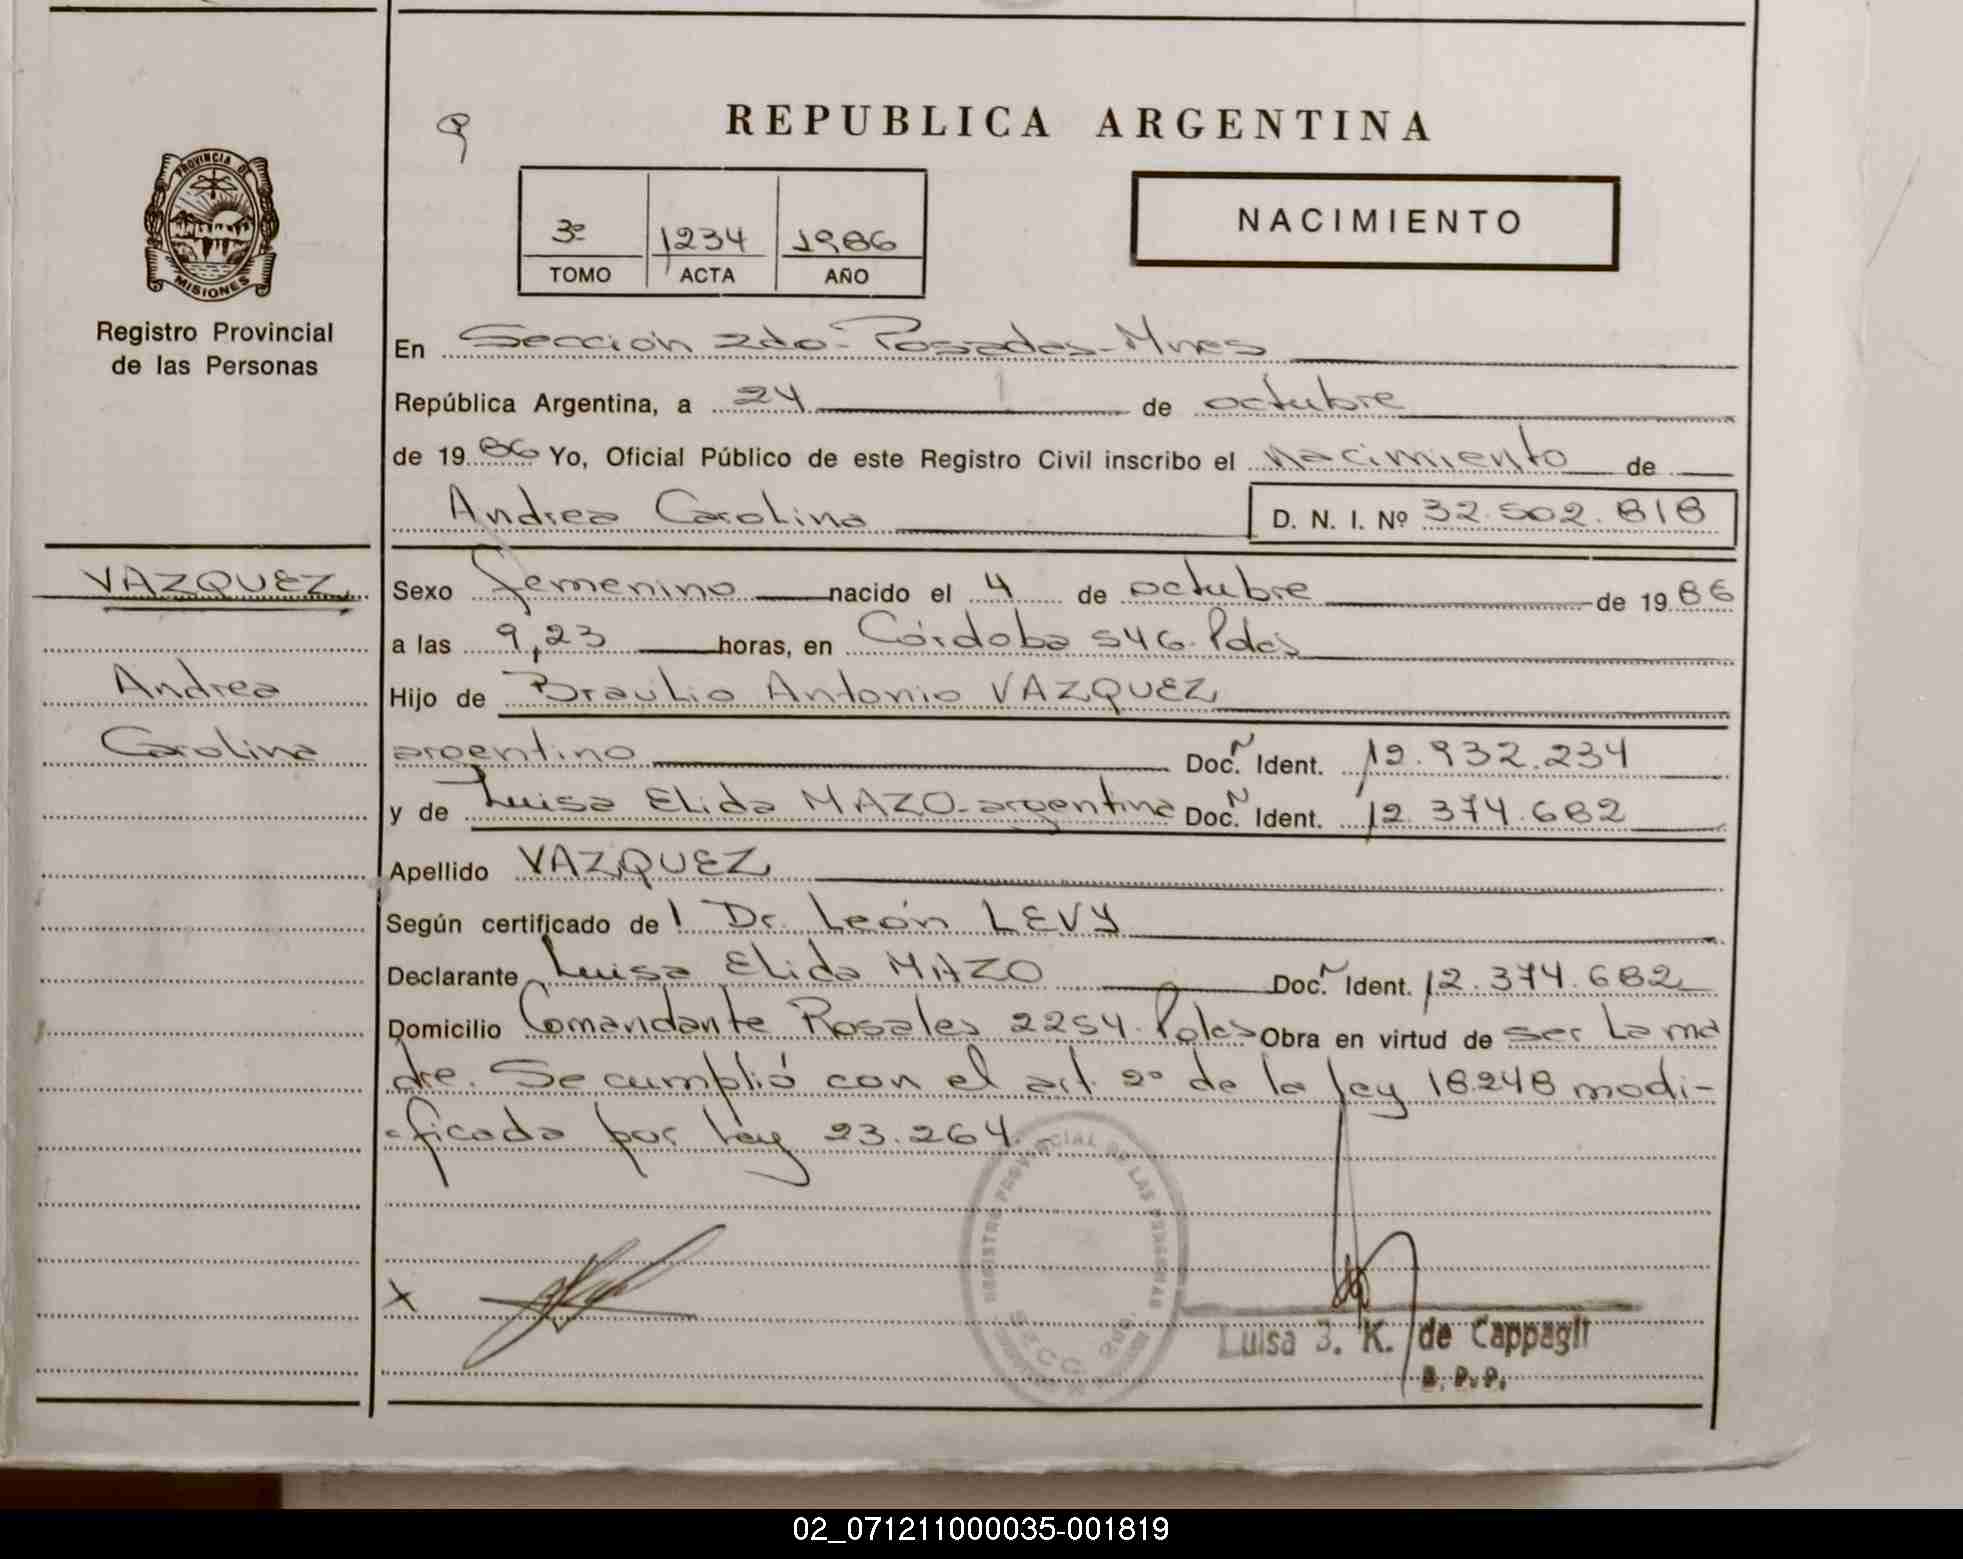 REPUBLICA ARGENTINA
3º 1234 1986
TOMO ACTA AÑO
NACIMIENTO
PROVINCIA D
MISIONES
Registro Provincial
de las Personas
En Sección 2do- Posadas-Mnes
República Argentina, a 24 de octubre
de 1986 Yo, Oficial Público de este Registro Civil inscribo el nacimiento de
Andrea Carolina D. N. I. Nº 32.502.818
VAZQUEZ
Andrea
Carolina
Sexo femenino nacido el 4 de octubre de 1986
a las 9,23 horas, en Córdoba 546. Pdas
Hijo de Braulio Antonio VAZQUEZ
argentino Doc. N Ident. 12.932.234
y de Luisa Elida MAZO-argentina Doc. N Ident. 12.374.682
Apellido VAZQUEZ
Según certificado de l Dr. León LEVY
Declarante Luisa Elida MAZO Doc. N Ident. 12.374.682
Domicilio Comandante Rosales 2254. Pdas Obra en virtud de ser la ma
dre. Se cumplió con el art. 2º de la ley 18.248 modi-
ficada por ley 23.264.
REGISTRO PROVINCIAL DE LAS PERSONAS
SECC. 2da.
X
Luisa J. K. de Cappagli
02_071211000035-001819